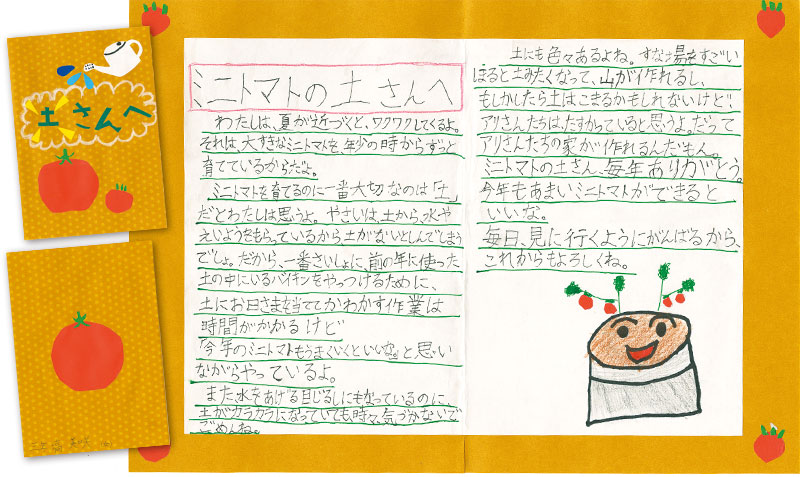 土さんへ
ミニトマトの土さんへ
わたしは、夏が近づくと、ワクワクしてくるよ。
それは、大すきなミニトマトを、年少の時からずっと
育てているからだよ。
ミニトマトを育てるのに一番大切なのは「土」
だとわたしは思うよ。やさいは、土から、水や
えいようをもらっているから土がないとしんでしまう
でしょ。だから、一番さいしょに、前の年に使った
土の中にいるバイキンをやっつけるために、
土にお日さまを当ててかわかす作業は
時間がかかるけど
「今年のミニトマトもうまくいくといいな。」と思い
ながらやっているよ。
また水をあげる目じるしにもなっているのに、
土がカラカラになっていても時々、気づかないで
ごめんね。
土にも色々あるよね。すな場をすごい
ほると土みたくなって、山が作れるし、
もしかしたら土はこまるかもしれないけど、
アリさんたちは、たすかっていると思うよ。だって
アリさんたちの家が作れるんだもん。
ミニトマトの土さん、毎年ありがとう。
今年もあまいミニトマトができると
いいな。
毎日、見に行くようにがんばるから、
これからもよろしくね。